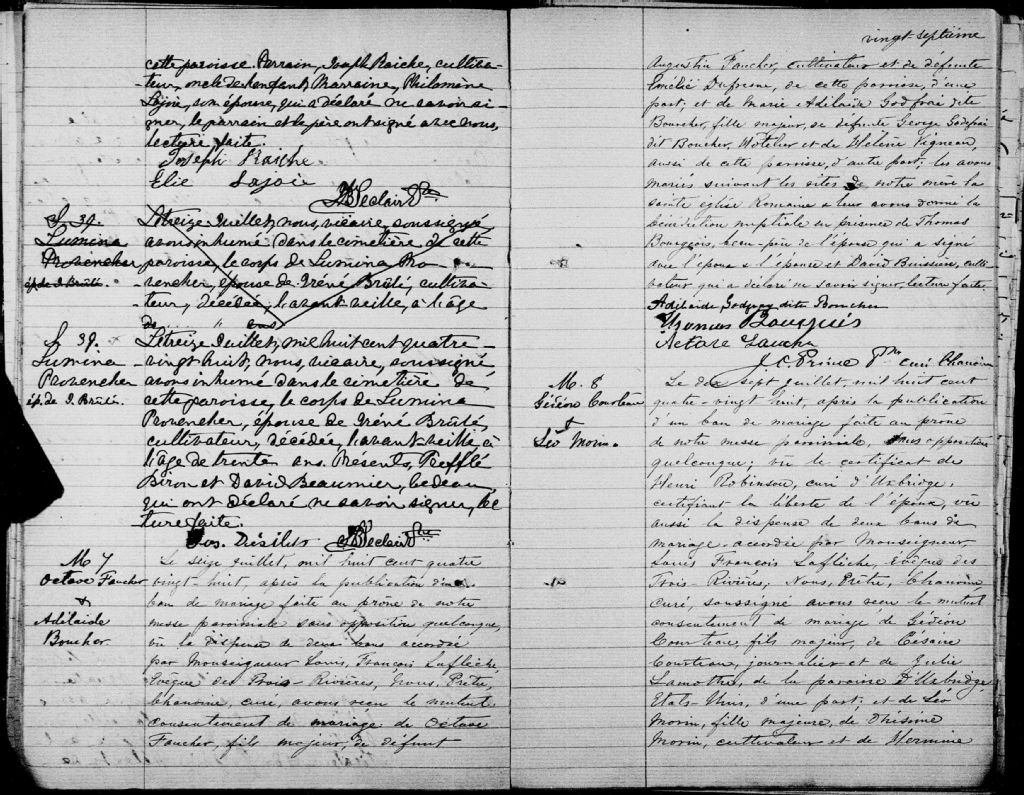 cette paroisse. Parrain, Joseph Raiche, cultiva-
-teur, oncle de l'enfant, Marraine, Philomène
Lajoie, son épouse, qui a déclaré ne savoir si-
gner, le parrain et le père ont signé avec nous,
lecture faite.
Joseph Raiche
Elie Lajoie
Leclair Ptre
S. 39.
Lumina
Provencher,
ép. de I. Brûlé.
Le treize Juillet, nous, vicaire, soussigné
avons inhumé dans le cimetière de cette
paroisse, le corps de Lumina Pro-
vencher, épouse de Iréné Brûlé, cultiva-
teur, décédée, l'avant veille, à l'âge
de
S. 39.
Lumina
Provencher
ép. de I. Brûlé.
Le treize Juillet, mil huit cent quatre-
vingt huit, nous, vicaire, soussigné
avons inhumé dans le cimetière de
cette paroisse, le corps de Lumina
Provencher, épouse de Iréné Brûlé,
cultivateur, décédée, l'avant veille, à
l'âge de trente ans. Présents, Trefflé
Biron et David Beaumier, bedeau,
qui ont déclaré ne savoir signer, lec
ture faite.
Jos. Désilets Leclair Ptre
M 7
Octave Faucher
&
Adélaide
Boucher.
Le seize juillet, mil huit cent quatre
vingt-huit, après la publication d'un
ban de mariage faite au prône de notre
messe paroissiale sans opposition quelconque,
vu la dispense de deux bans accordée
par Monseigneur Louis, François Laflèche,
Evêque des Trois-Rivières, Nous, Prêtre,
Chanoine, curé, avons reçu le mutuel
consentement de mariage de Octave
Faucher, fils majeur, de défunt
vingt septième
Augustin Faucher, cultivateur et de défunte
Emélie Dufresne, de cette paroisse, d'une
part, et de Marie Adélaide Godfrai dite
Boucher, fille majeur, de défunte George Godefrai
dit Boucher, Hôtelier et de Helène Vigneau,
aussi de cette paroisse, d'autre part; les avons
mariés suivant les rites de notre mère la
sainte église Romaine & leur avons donné la
bénédiction nuptiale en présence de Thomas
Bourgeois, beau-père de l'épouse qui a signé
avec l'époux & l'épouse et David Buissière, culti-
vateur, qui a déclaré ne savoir signer, lecture faite.
Adélaide Godfray dite Boucher
Octave Faucher
J. C. Prince Ptre curé Chanoine
M. 8
Gédéon Courteau
&
Léo Morin.
Le dix sept juillet, mil huit cent
quatre-vingt huit, après la publication
d'un ban de mariage faite au prône
de notre messe paroissiale, sans opposition
quelconque; vu le certificat de
Henri Robinson, curé d'Uxbridge,
certifiant la liberté de l'époux, vu
aussi la dispense de deux bans de
mariage accordée par Monseigneur
Louis François Laflèche, Evêque des
Trois-Rivières; Nous, Prêtre, Chanoine
curé, soussigné avons reçu le mutuel
consentement de mariage de Gédéon
Courteau, fils majeur, de Césaire
Courteau, journalier et de Julie
Lamothe, de la paroisse d'Uxbridge,
Etats-Unis, d'une part; et de Léo
Morin, fille majeure, de Onésime
Morin, cultivateur et de Hermine